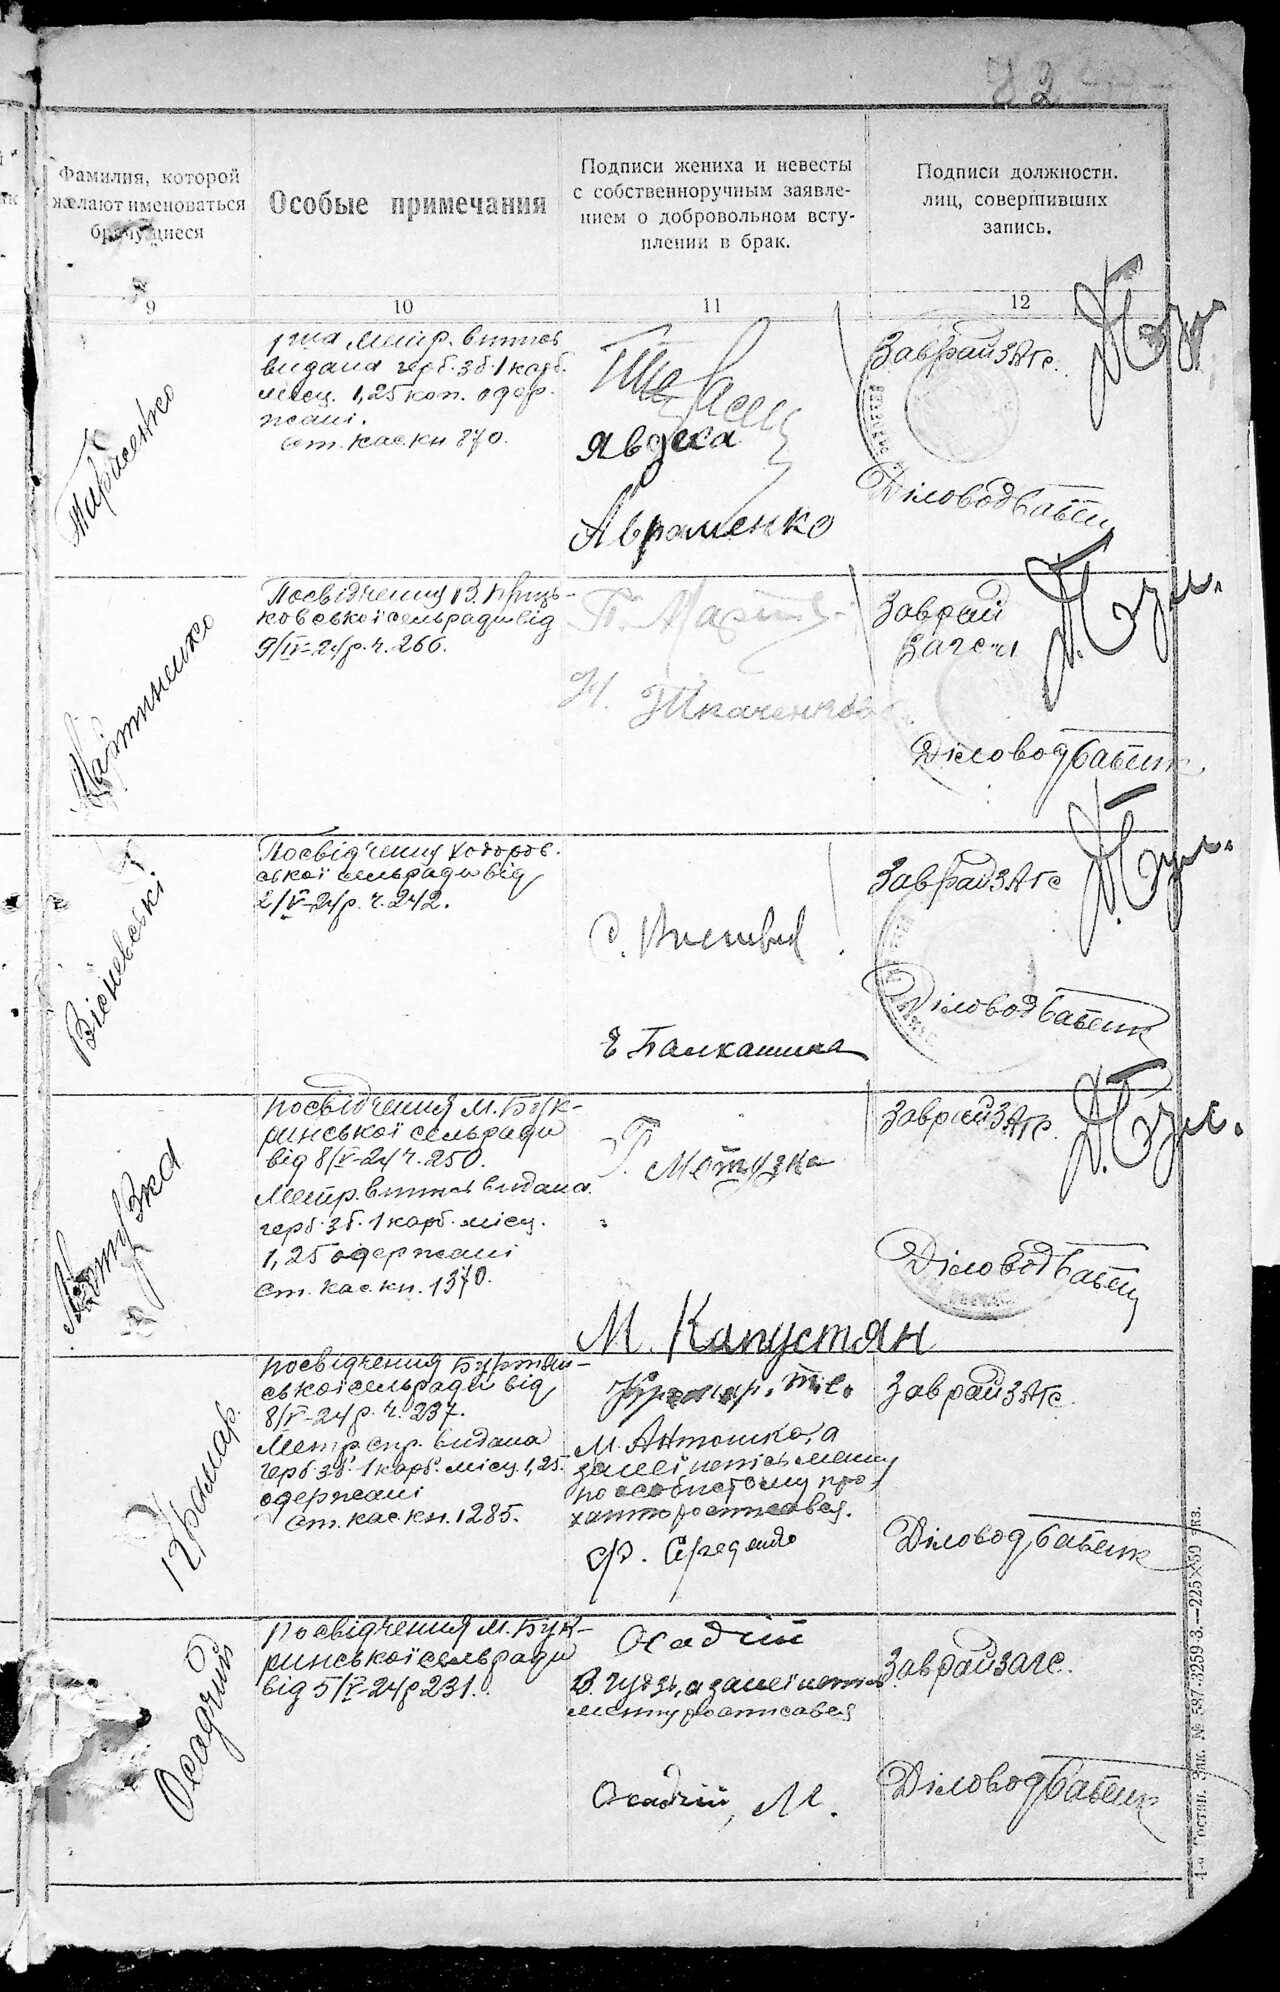 82
Фамилия, которой
желают именоваться
брачущиеся
Особые примечания
Подписи жениха и невесты
с собственноручным заявле-
нием о добровольном всту-
плении в брак.
Подписи должностн.
лиц, совершивших
запись.
9
10
11
12
Тарасенко
1 ша метр. випись
видана герб. зб. 1 карб.
місц. 1,25 коп. одер-
жані.
ст. кас. кн 870.
Тарасенк
Явдоха
Авраменко
ЗаврайЗАГС.
Діловод Бабенк
Мартиненко
Посвідчення В.
ковської сельради від
9/IV-24 р. ч. 266.
П. Март
Н. Ткаченкова
Заврай
загс'ом
Діловод Бабенк
Вісневські
Посвідчення Ходоров-
ської сельради від
2/V-24 р. ч. 242.
С. Висневс
Е Балкашина
ЗаврайЗАГС
Діловод Бабенк
Мотузка
Посвідчення М. Бук-
ринської сельради
від 8/V-24 ч. 250.
Метр. випись видана.
герб. зб. 1 карб. місц.
1,25 одержані
ст. кас. кн. 1370.
Г. Мотузка
М. Капустян
ЗаврайЗАГС.
Діловод Бабенк
Крамар.
Посвідчення
ської сельради від
8/V-24 р. ч. 237.
Метр. спр. видана
герб зб. 1 карб. місц. 1,25.
одержані
ст. кас. кн. 1285.
Крамар. т.е.
М. Антошкова
за неї неписьменну
по особистому про-
ханню росписався.
Ф. Середенко
ЗаврайЗАГС
Діловод Бабенк
Осадчий
Посвідчення М. Бук-
ринської сельради
від 5/V-24 р 231.
Осадчій
В. Гудзь, а за неї непись
менну росписався
Осадчій, М.
Заврайзагс.
Діловод Бабенк
1-я Гостип. Зак. № 587.3259-3.—225×50 экз.